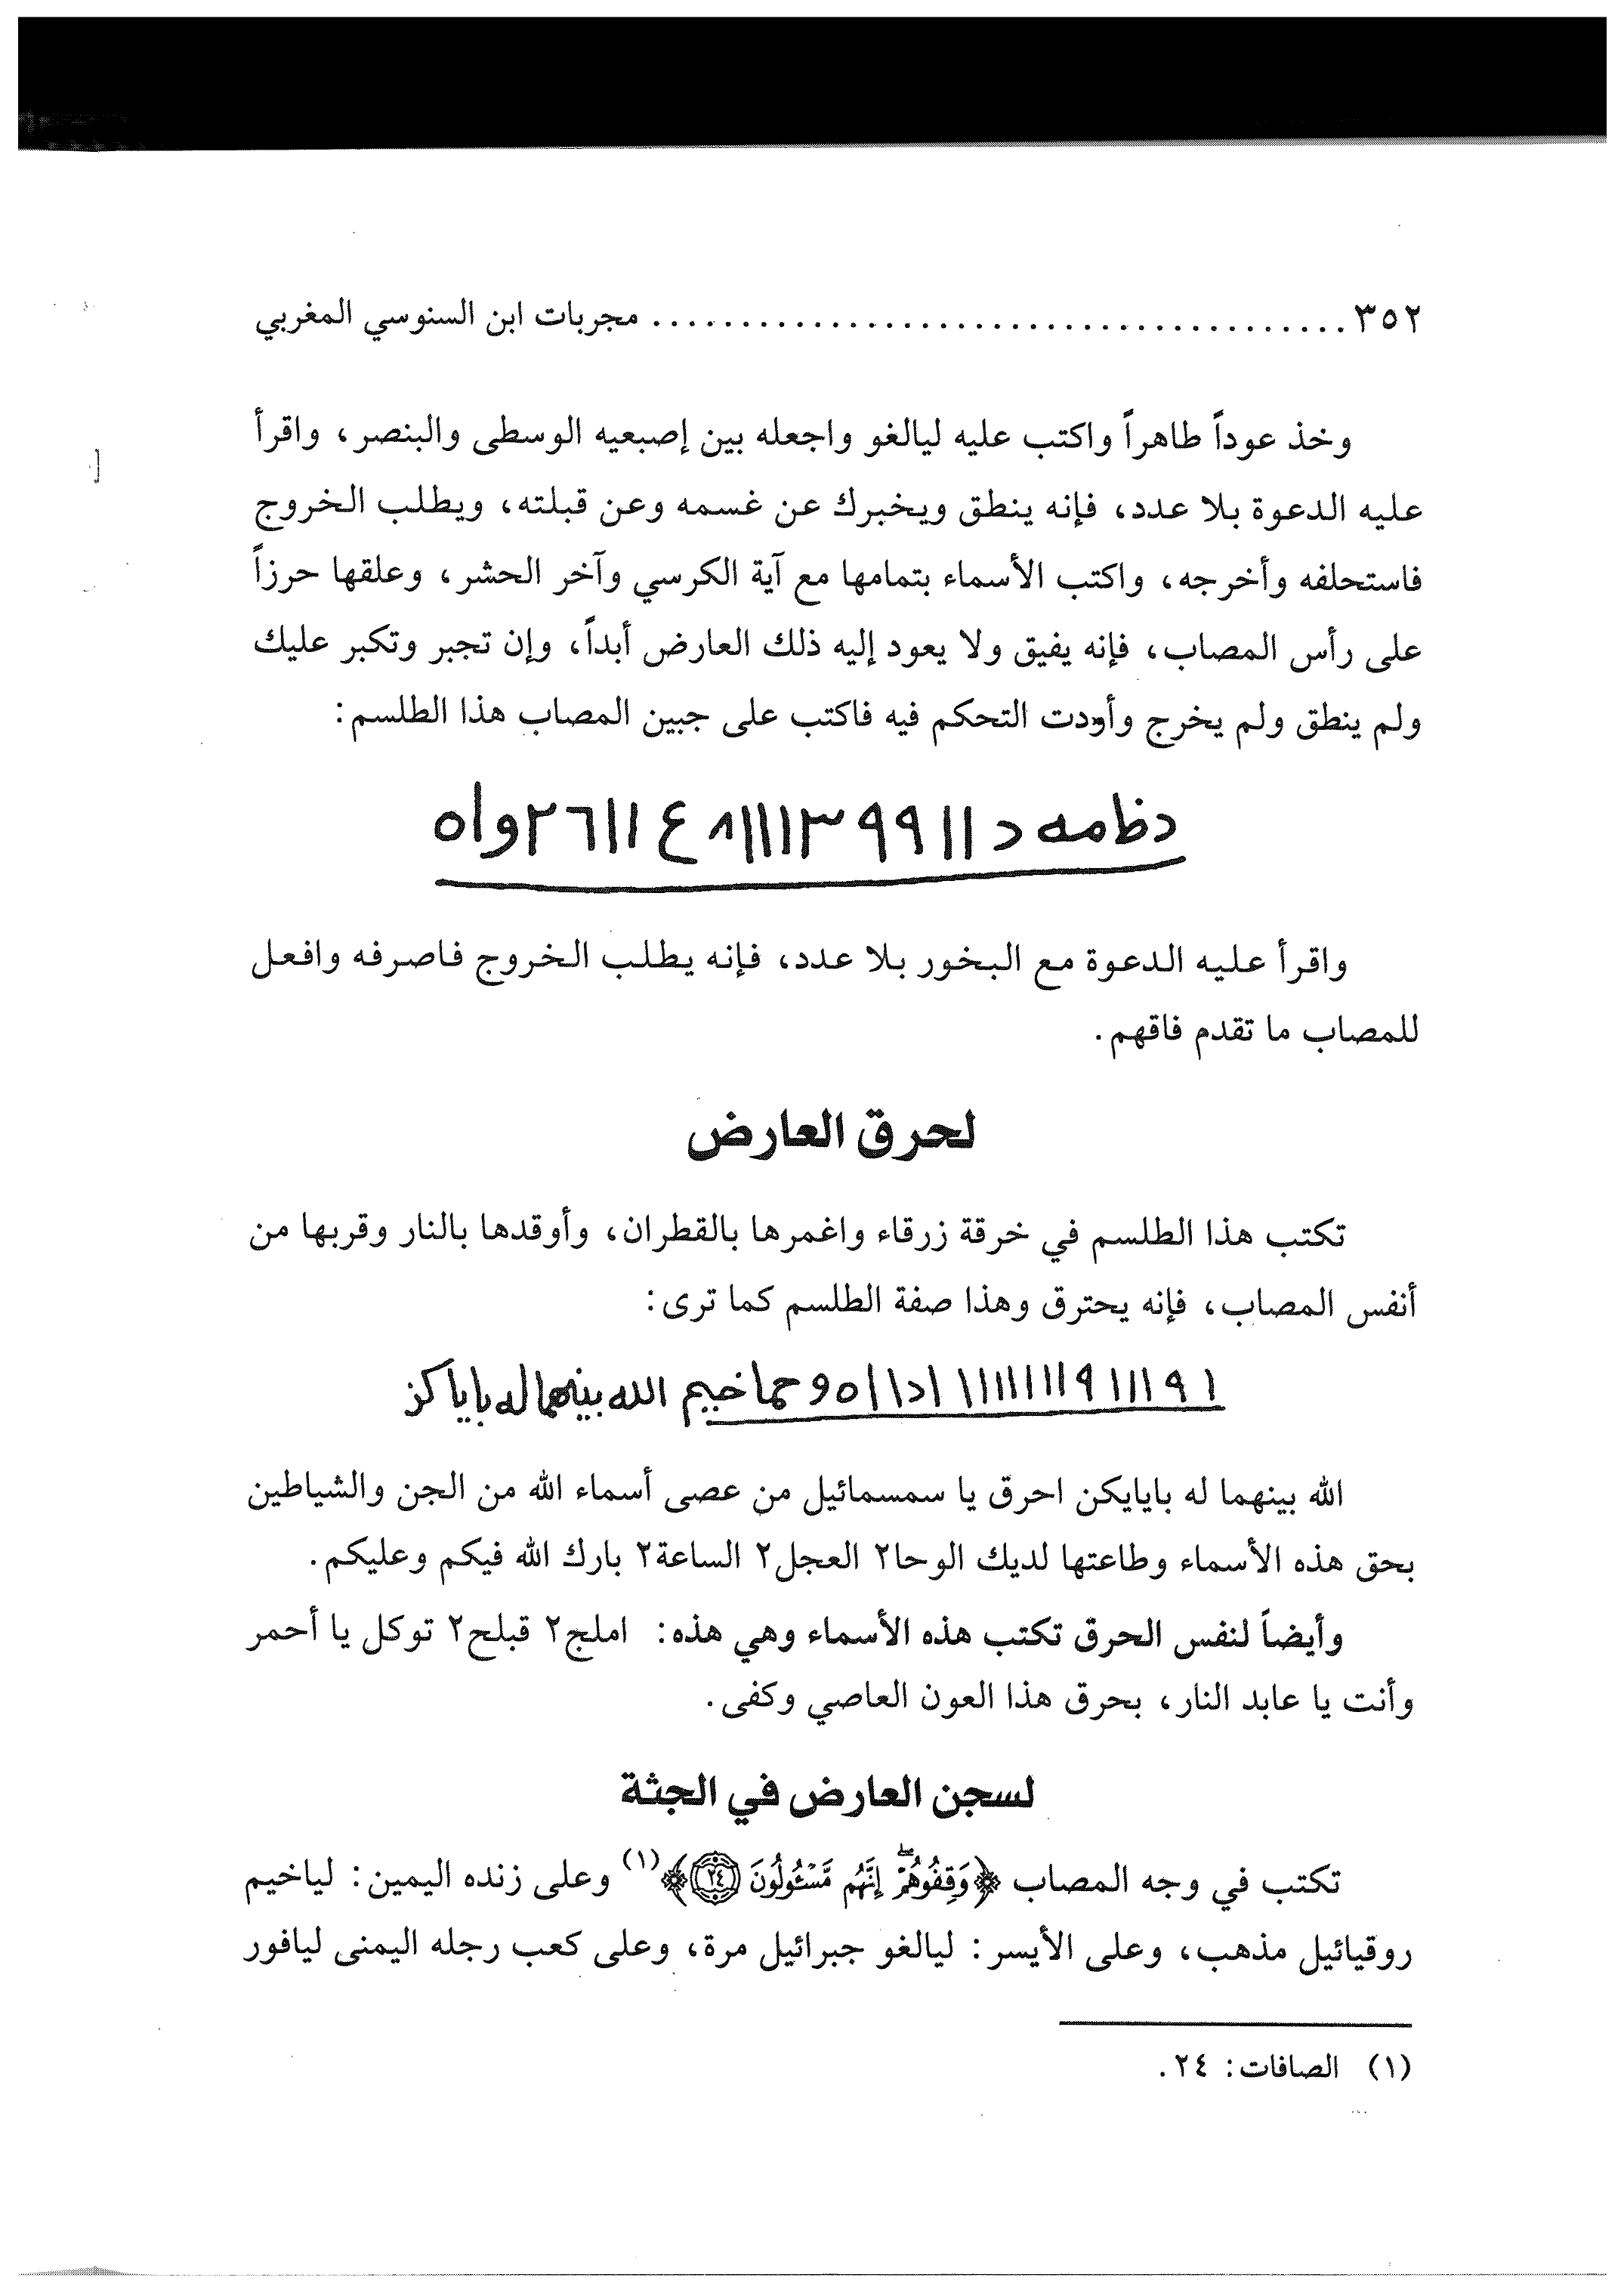 ٣٥٢ ........................................ مجربات ابن السنوسي المغربي
وخذ عوداً طاهراً واكتب عليه ليالغو واجعله بين إصبعيه الوسطى والبنصر، واقرأ
عليه الدعوة بلا عدد، فإنه ينطق ويخبرك عن غسمه وعن قبلته، ويطلب الخروج
فاستحلفه وأخرجه، واكتب الأسماء بتمامها مع آية الكرسي وآخر الحشر، وعلقها حرزاً
على رأس المصاب، فإنه يفيق ولا يعود إليه ذلك العارض أبداً، وإن تجبر وتكبر عليك
ولم ينطق ولم يخرج وأودت التحكم فيه فاكتب على جبين المصاب هذا الطلسم:
واقرأ عليه الدعوة مع البخور بلا عدد، فإنه يطلب الخروج فاصرفه وافعل
للمصاب ما تقدم فاقهم.
لحرق العارض
تكتب هذا الطلسم في خرقة زرقاء واغمرها بالقطران، وأوقدها بالنار وقربها من
أنفس المصاب، فإنه يحترق وهذا صفة الطلسم كما ترى:
الله بينهما له بايايكن احرق يا سمسمائيل من عصى أسماء الله من الجن والشياطين
بحق هذه الأسماء وطاعتها لديك الوحا٢ العجل٢ الساعة٢ بارك الله فيكم وعليكم.
وأيضاً لنفس الحرق تكتب هذه الأسماء وهي هذه: املج٢ قبلح٢ توكل يا أحمر
وأنت يا عابد النار، بحرق هذا العون العاصي وكفى.
لسجن العارض في الجثة
تكتب في وجه المصاب ﴿وَقِفُوهُمْ ۖ إِنَّهُم مَّسْـُٔولُونَ ٢٤﴾(١) وعلى زنده اليمين: لياخيم
روقيائيل مذهب، وعلى الأيسر: ليالغو جبرائيل مرة، وعلى كعب رجله اليمنى ليافور
(١) الصافات: ٢٤.